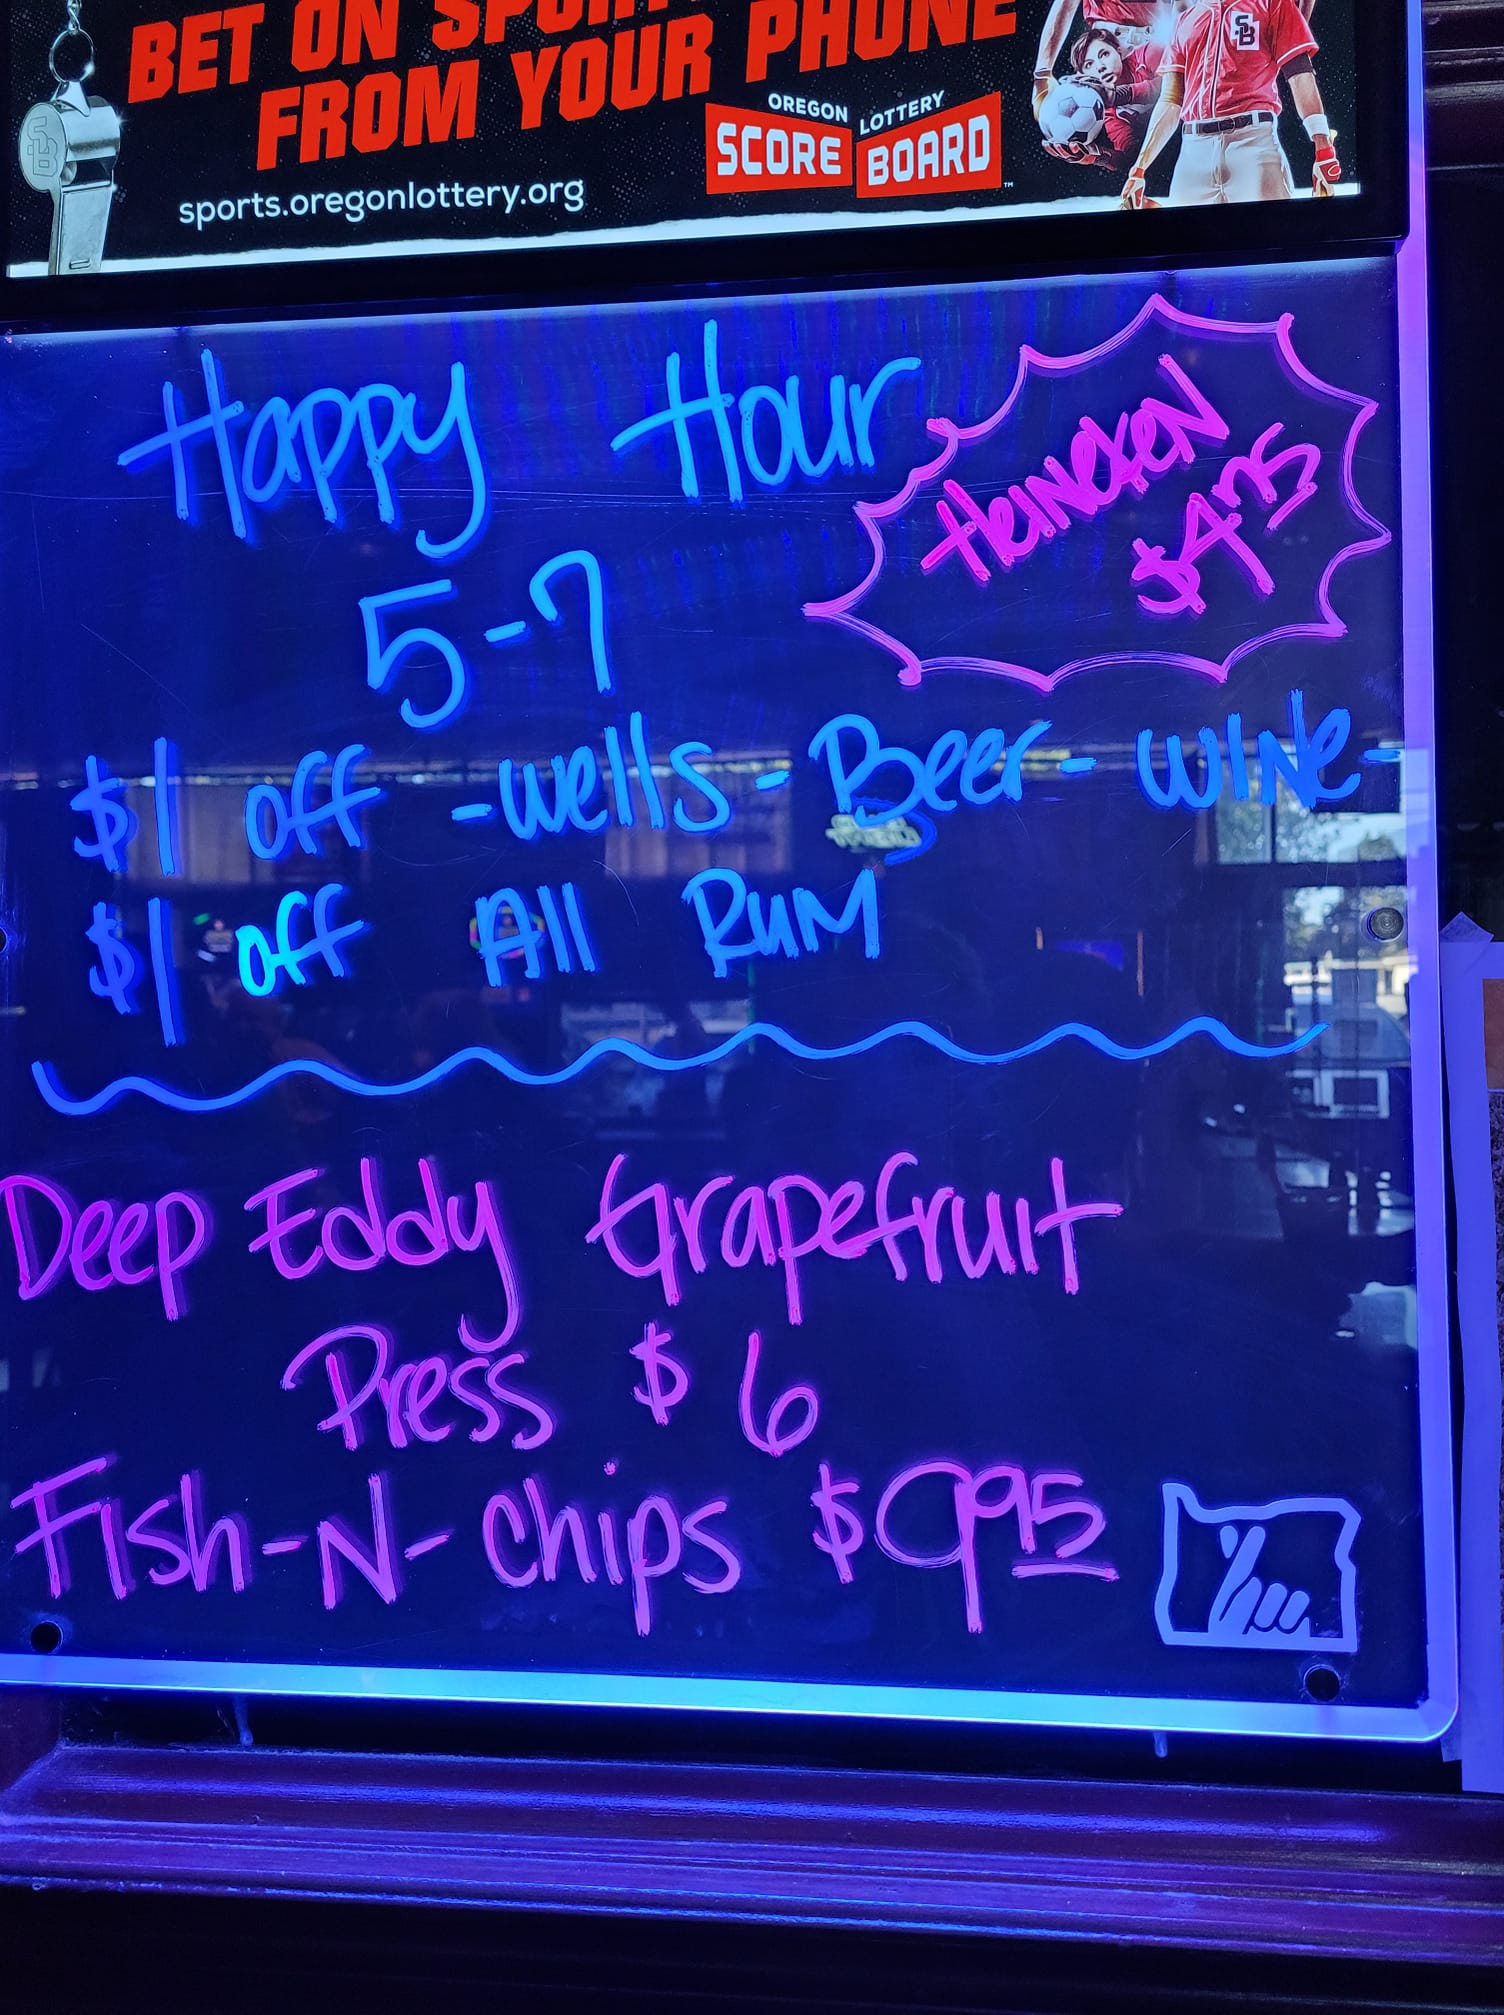 BET ON SPORTS
FROM YOUR PHONE
OREGON LOTTERY
SCORE BOARD™
sports.oregonlottery.org
SB
SB
Happy Hour
5-7
HEINEKEN
$4.75
$1 off -wells - Beer - WINE -
$1 off All RUM
Deep Eddy Grapefruit
Press $6
Fish-N-Chips $995